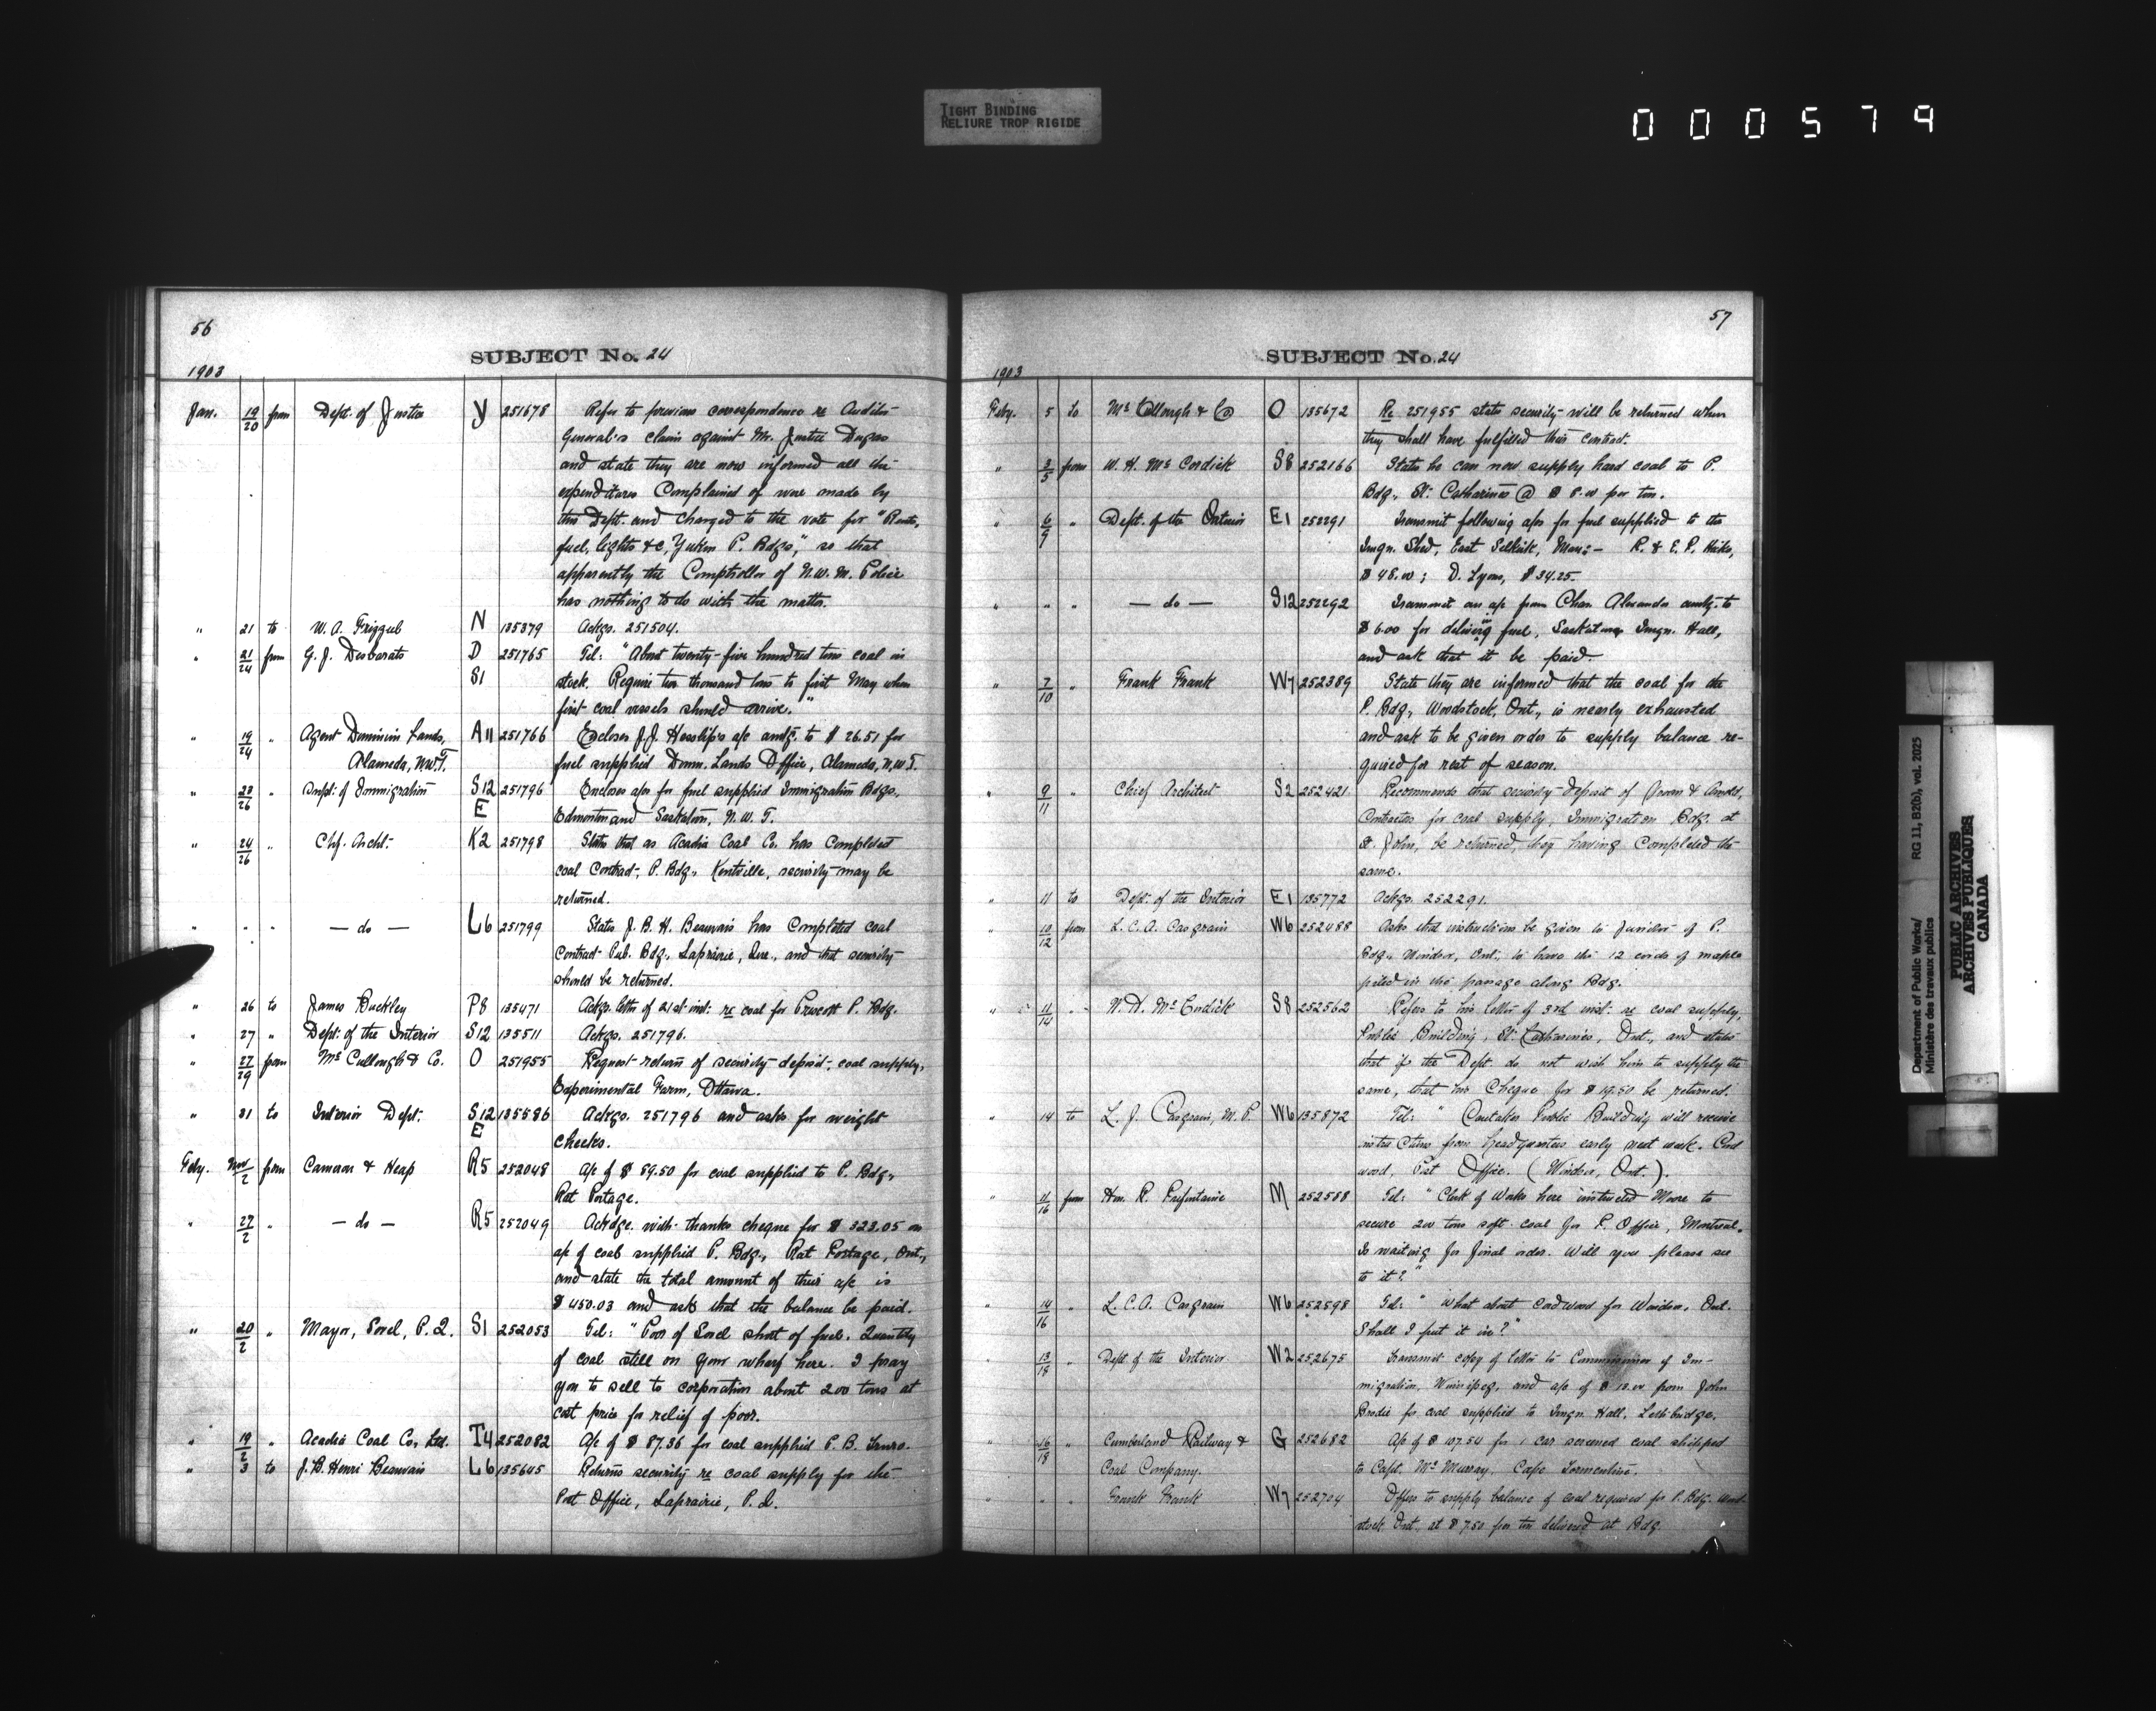 TIGHT BINDING
RELIURE TROP RIGIDE
000579
56
SUBJECT No. 24
1903
Jan. 19/20 from Dept. of Justice Y 251678 Refer to previous correspondence re Auditor
General's claim against Mr. Justice Dugas
and state they are now informed all the
expenditures Complained of were made by
this Dept. and charged to the vote for "Rents,
fuel, lights &c, Yukon P. Bdgs", so that
apparently the Comptroller of N.W.M. Police
has nothing to do with the matter.
" 21 to W. A. Frizzel N 135379 Ackgs. 251504.
" 21/24 from G. J. Desbarats D 251765 Tel: "About twenty-five hundred tons coal in
S1 stock. Require two thousand tons to first May when
first coal vessels should arrive."
" 19/24 " Agent Dominion Lands, A11 251766 Encloses J.J. Heaslip's a/c amtg. to $26.51 for
Alameda, N.W.T. fuel supplied Domn. Lands Office, Alameda, N.W.T.
" 23/26 " Supt. of Immigration S12 251796 Encloses a/cs for fuel supplied Immigration Bdgs,
E Edmonton and Saskatoon, N.W.T.
" 24/26 " Chf. Archt. K2 251798 States that as Acadia Coal Co. has Completed
coal Contract, P. Bdg., Kentville, security may be
returned.
" " " — do — L6 251799 States J. B. H. Beauvais has Completed coal
Contract Pub. Bdg., Laprairie, Que., and that security
should be returned.
" 26 to James Buckley P8 135471 Ackgs. letter of 21st inst: re coal for Prescott P. Bdg.
" 27 " Dept. of the Interior S12 135511 Ackgs. 251796.
" 27/29 from McCullough & Co. O 251955 Request return of security deposit, coal supply,
Experimental Farm, Ottawa.
" 31 to Interior Dept. S12 135586 Ackgs. 251796 and asks for weight
E checks.
Feby. Nov/2 from Cameron & Heap R5 252048 A/c of $89.50 for coal supplied to P. Bdg.,
Rat Portage.
" 27/2 " — do — R5 252049 Ackdge. with thanks cheque for $323.05 on
a/c of coal supplied P. Bdg., Rat Portage, Ont.,
and state the total amount of their a/c is
$450.03 and ask that the balance be paid.
" 20/2 " Mayor, Sorel, P.Q. S1 252053 Tel: "Poor of Sorel short of fuel. Quantity
of coal still on your wharf here. I pray
you to sell to corporation about 200 tons at
cost price for relief of poor.
" 19/2 " Acadia Coal Co., Ltd. T4 252082 A/c of $87.36 for coal supplied P. B. Truro.
" 3 to J. B. Henri Beauvais L6 135645 Returns security re coal supply for the
Post Office, Laprairie, P.Q.
57
SUBJECT No. 24
1903
Feby. 5 to McCullough & Co O 135672 Re 251955 states security will be returned when
they shall have fulfilled their contract.
" 3/5 from W. H. McCordick S8 252166 States he can now supply hard coal to P.
Bdg., St. Catharines @ $8.00 per ton.
" 6/9 " Dept. of the Interior E1 252291 Transmit following a/cs for fuel supplied to the
Imgn. Shed, East Selkirk, Man:— R. & E. P.
$48.00; D. Lyons, $34.25.
" " " — do — S12 252292 Transmit an a/c from Chas. Alexander amtg. to
$6.00 for delivering fuel, Saskatoon Imgn. Hall,
and ask that it be paid.
" 7/10 " Frank Frank W7 252389 State they are informed that the coal for the
P. Bdg., Woodstock, Ont., is nearly exhausted
and ask to be given order to supply balance re-
quired for rest of season.
" 9/11 " Chief Architect S2 252421 Recommends that security deposit of & Arnold,
Contractors for coal supply, Immigration Bdg. at
St. John, be returned, they having Completed the
same.
" 11 to Dept. of the Interior E1 135772 Ackgs. 252291.
" 10/12 from L. C. A. Casgrain W6 252488 Asks that instructions be given to Janitor of P.
Bdg., Windsor, Ont., to have the 12 cords of maple
piled in the passage along Bdg.
" 11/14 " W. H. McCordick S8 252562 Refers to his letter of 3rd inst: re coal supply,
Public Building, St. Catharines, Ont., and states
that if the Dept. do not wish him to supply the
same, that his Cheque for $19.50 be returned.
" 14 to L. J. Casgrain, M.P. W6 135872 Tel: "Caretaker Public Building will receive
instructions from headquarters early next week. Cord
wood, Post Office. (Windsor, Ont.).
" 11/16 from Hon. R. Prefontaine M 252588 Tel: "Clerk of Works here instructed Moore to
secure 200 tons soft coal for P. Office, Montreal.
Is waiting for final order. Will you please see
to it?"
" 14/16 " L. C. A. Casgrain W6 252598 Tel: "What about cordwood for Windsor, Ont.
Shall I put it in?"
" 13/18 " Dept. of the Interior W2 252675 Transmit copy of letter to Commissioner of Im-
migration, Winnipeg, and a/c of $18.00 from John
Brodie for coal supplied to Imgn. Hall, Lethbridge.
" 16/18 " Cumberland Railway & G 252682 A/c of $107.54 for 1 car screened coal shipped
Coal Company. to Capt. McMurray, Cape Tormentine.
" " " Frank Frank W7 252704 Offers to supply balance of coal required for P. Bdg. Wood-
stock Ont., at $7.50 per ton delivered at Bdg.
Department of Public Works/ RG 11, B2(b), vol. 2025
Ministère des travaux publics
PUBLIC ARCHIVES
ARCHIVES PUBLIQUES
CANADA